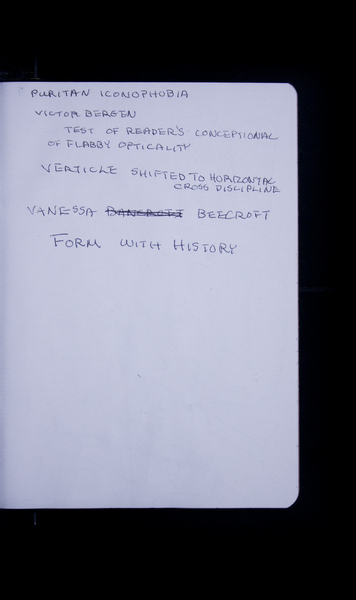 PURITAN ICONOPHOBIA
VICTOR BERGEN
TEST OF READER'S CONCEPTIONAL
OF FLABBY OPTICALITY
VERTICLE SHIFTED TO HORIZONTAL
CROSS DISCIPLINE
VANESSA BANCROFT BEECROFT
FORM WITH HISTORY